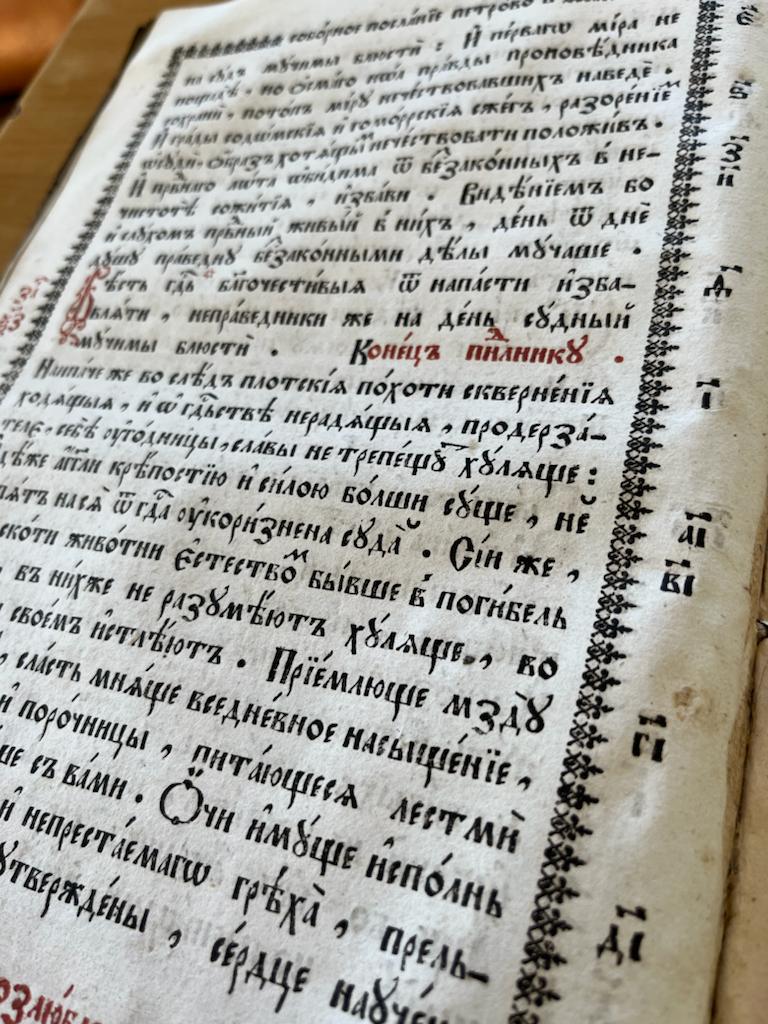 соборное посланїе петрово в҃
на сꙋдъ мꙋчимы блюсти : И҆ пе́рвагѡ мі́ра не
пощадѣ̀ , но ѻ҆смаго нѡ́а пра́вды проповѣ́дника
сохранѝ , пото́пъ мі́рꙋ нече́ствовавшихъ наведѐ .
И҆ гра́ды содо́мскїѧ и҆ гомо́ррскїѧ сже́гъ , разоре́нїемъ
ѡ҆сꙋдѝ , ѻ҆́бразъ хотѧ́щымъ нече́ствовати положи́въ .
И҆ пра́внаго лѡ́та ѡ҆би́дима ѿ беззако́нныхъ в̾ не-
чистотѣ̀ сожи́тїѧ , и҆зба́ви . Ви́дѣнїемъ бо
и҆ слꙋ́хомъ пра́вный живы́й в̾ ни́хъ , де́нь ѿ днѐ
дꙋ́шꙋ пра́веднꙋ беззако́нными дѣ́лы мꙋ́чаше .
Вѣ́сть гд҇ь бл҃гочести́выѧ ѿ напа́сти и҆зба-
влѧ́ти , непра́ведники же на де́нь сꙋ́дный
мꙋ́чимы блюстѝ . Коне́цъ пн҇лникꙋ .
Наипа́че же во слѣ́дъ плотскі́ѧ по́хоти скверне́нїѧ
ходѧ́щыѧ , и҆ ѡ҆ гд҇ьствѣ неради́щыѧ , продерза́-
теле , себѣ̀ ᲂу҆го́дницы , сла́вы не трепе́щꙋтъ хꙋ́лѧще :
дѣ́же а҆́гг҃ли крѣ́постїю и҆ си́лою бо́лши сꙋ́ще , не
нася̀ ѿ гд҇а ᲂу҆кори́знена сꙋда̀ . Сі́и же ,
ско́ти живо́тни є҆стество́мъ бы́вше в̾ поги́бель
, въ ни́хже не разꙋмѣ́ютъ хꙋ́лѧще , во
свое́мъ и҆стлѣ́ютъ . Прїе́млюще мздꙋ̀
, сла́сть мнѧ́ще вседне́вное насыще́нїе ,
и҆ поро́чницы , пита́ющесѧ лестмѝ
съ ва́ми . Ѻ҆́чи и҆мꙋ́ще и҆спо́лнь
и҆ непреста́емагѡ грѣха̀ , прель-
ᲂу҆твержде́ны , се́рдце наꙋче́
ѕ҃
з҃
и҃
ѳ҃
і҃
а҃і
в҃і
г҃і
д҃і